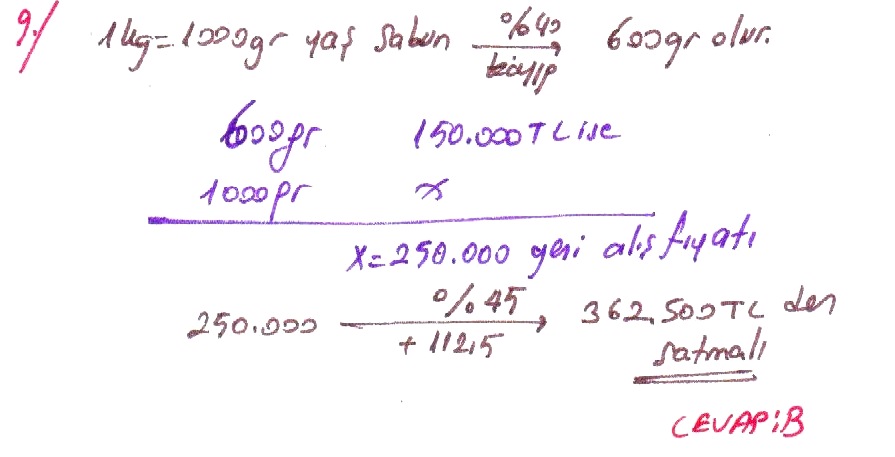 9./ 1kg=1000gr yaş sabun %40 kayıp 600gr olur.
600gr 150.000TL ise
1000gr x
x=250.000 yeni alış fiyatı
250.000 %45 +112,5 362.500TL den
satmalı
CEVAP:B